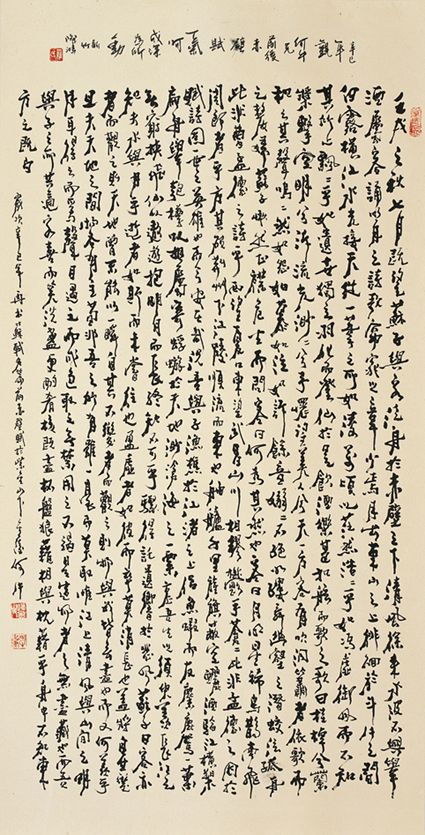 壬戌之秋七月既望蘇子與客泛舟於赤壁之下清風徐來水波不興舉
酒屬客誦明月之詩歌窈窕之章少焉月出東山之上徘徊於斗牛之間
白露橫江水光接天縱一葦之所如凌萬頃之茫然浩浩乎如馮虛御風而不知
其所止飄飄乎如遺世獨立羽化而登仙於是飲酒樂甚扣舷而歌之歌曰桂棹兮蘭
槳擊空明兮泝流光渺渺兮予懷望美人兮天一方客有吹洞簫者依歌而
和之其聲嗚嗚然如怨如慕如泣如訴餘音嫋嫋不絕如縷舞幽壑之潛蛟泣孤舟
之嫠婦蘇子愀然正襟危坐而問客曰何為其然也客曰月明星稀烏鵲南飛
此非曹孟德之詩乎西望夏口東望武昌山川相繆鬱乎蒼蒼此非孟德之困於
周郎者乎方其破荊州下江陵順流而東也舳艫千里旌旗蔽空釃酒臨江橫槊
賦詩固一世之雄也而今安在哉況吾與子漁樵於江渚之上侶魚蝦而友麋鹿駕一葉
扁舟舉匏樽以相屬寄蜉蝣於天地渺滄海之一粟哀吾生之須臾羨長江之
無窮挾飛仙以遨遊抱明月而長終知不可乎驟得託遺響於悲風蘇子曰客亦
知夫水與月乎逝者如斯而未嘗往也盈虛者如彼而卒莫消長也蓋將自其變
者而觀之則天地曾不能以一瞬自其不變者而觀之則物與我皆無盡也而又何羨乎
且夫天地之間物各有主苟非吾之所有雖一毫而莫取惟江上清風與山間之明
月耳得之而為聲目遇之而成色取之無禁用之不竭是造物者之無盡藏也而吾
與子之所共適客喜而笑洗盞更酌肴核既盡杯盤狼藉相與枕藉乎舟中不知東
方之既白
歲次辛巳年 書蘇軾 前赤壁賦於 山下 何
辛巳
年
觀
何
兄
前後
赤